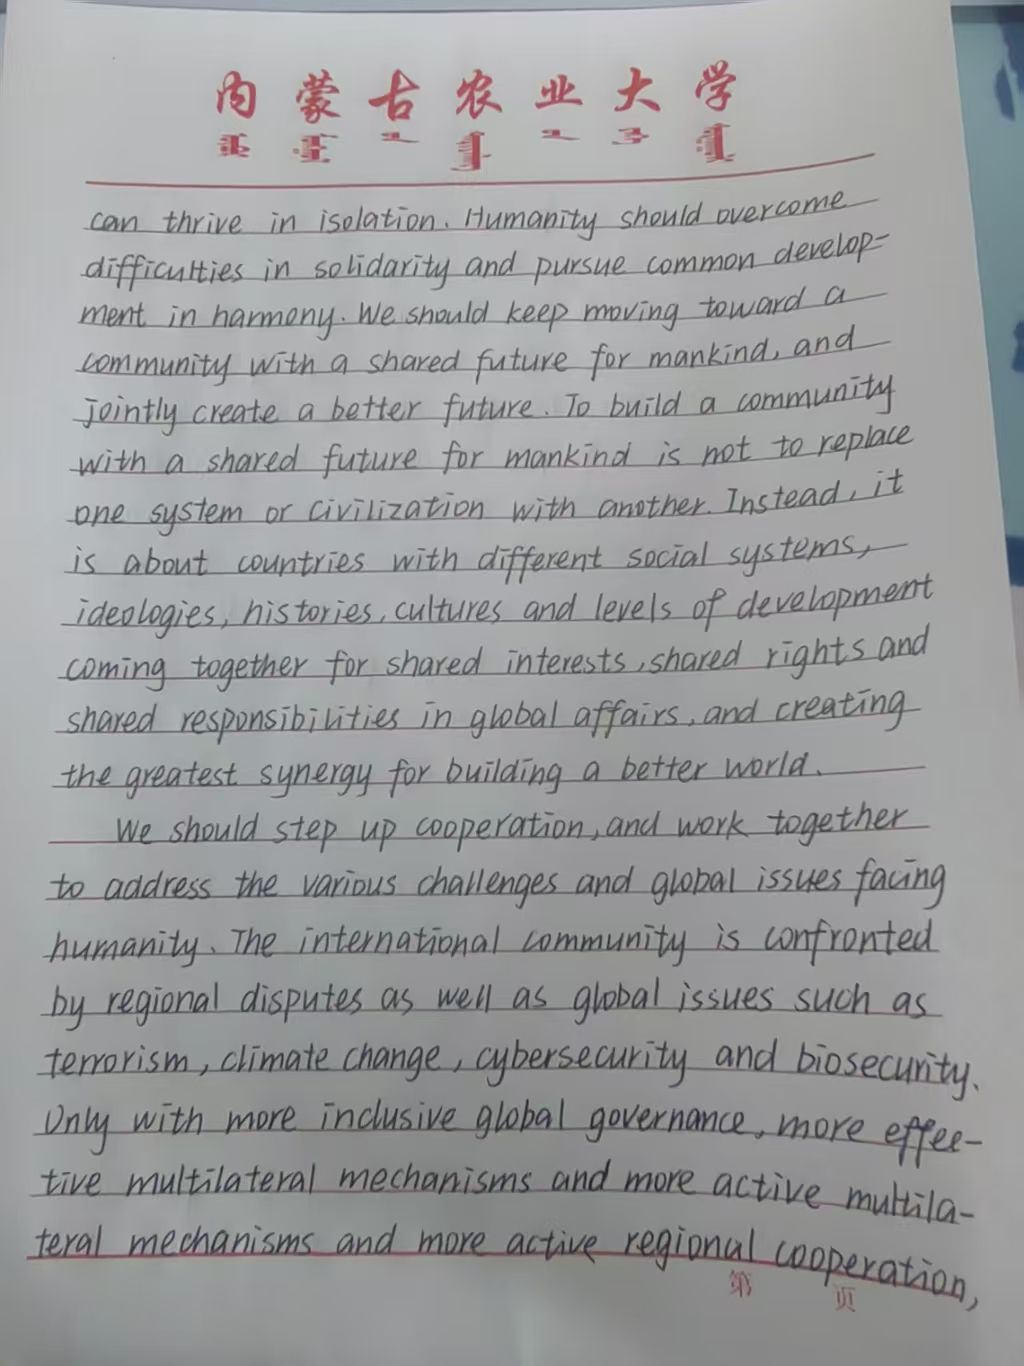 内蒙古农业大学
can thrive in isolation. Humanity should overcome
difficulties in solidarity and pursue common develop-
ment in harmony. We should keep moving toward a
community with a shared future for mankind, and
jointly create a better future. To build a community
with a shared future for mankind is not to replace
one system or civilization with another. Instead, it
is about countries with different social systems,
ideologies, histories, cultures and levels of development
coming together for shared interests, shared rights and
shared responsibilities in global affairs, and creating
the greatest synergy for building a better world.
We should step up cooperation, and work together
to address the various challenges and global issues facing
humanity. The international community is confronted
by regional disputes as well as global issues such as
terrorism, climate change, cybersecurity and biosecurity.
Only with more inclusive global governance, more effee-
tive multilateral mechanisms and more active multila-
teral mechanisms and more active regional cooperation,
第 页